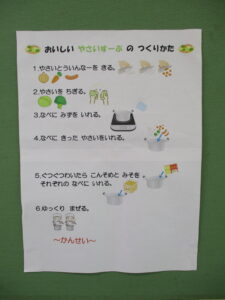 おいしい やさいすーぷ の つくりかた
1.やさいとういんなーを きる。
2.やさいを ちぎる。
3.なべに みずを いれる。
4.なべに きった やさいをいれる。
5.ぐつぐつわいたら こんそめと みそを
それぞれの なべに いれる。
6.ゆっくり まぜる。
~かんせい~